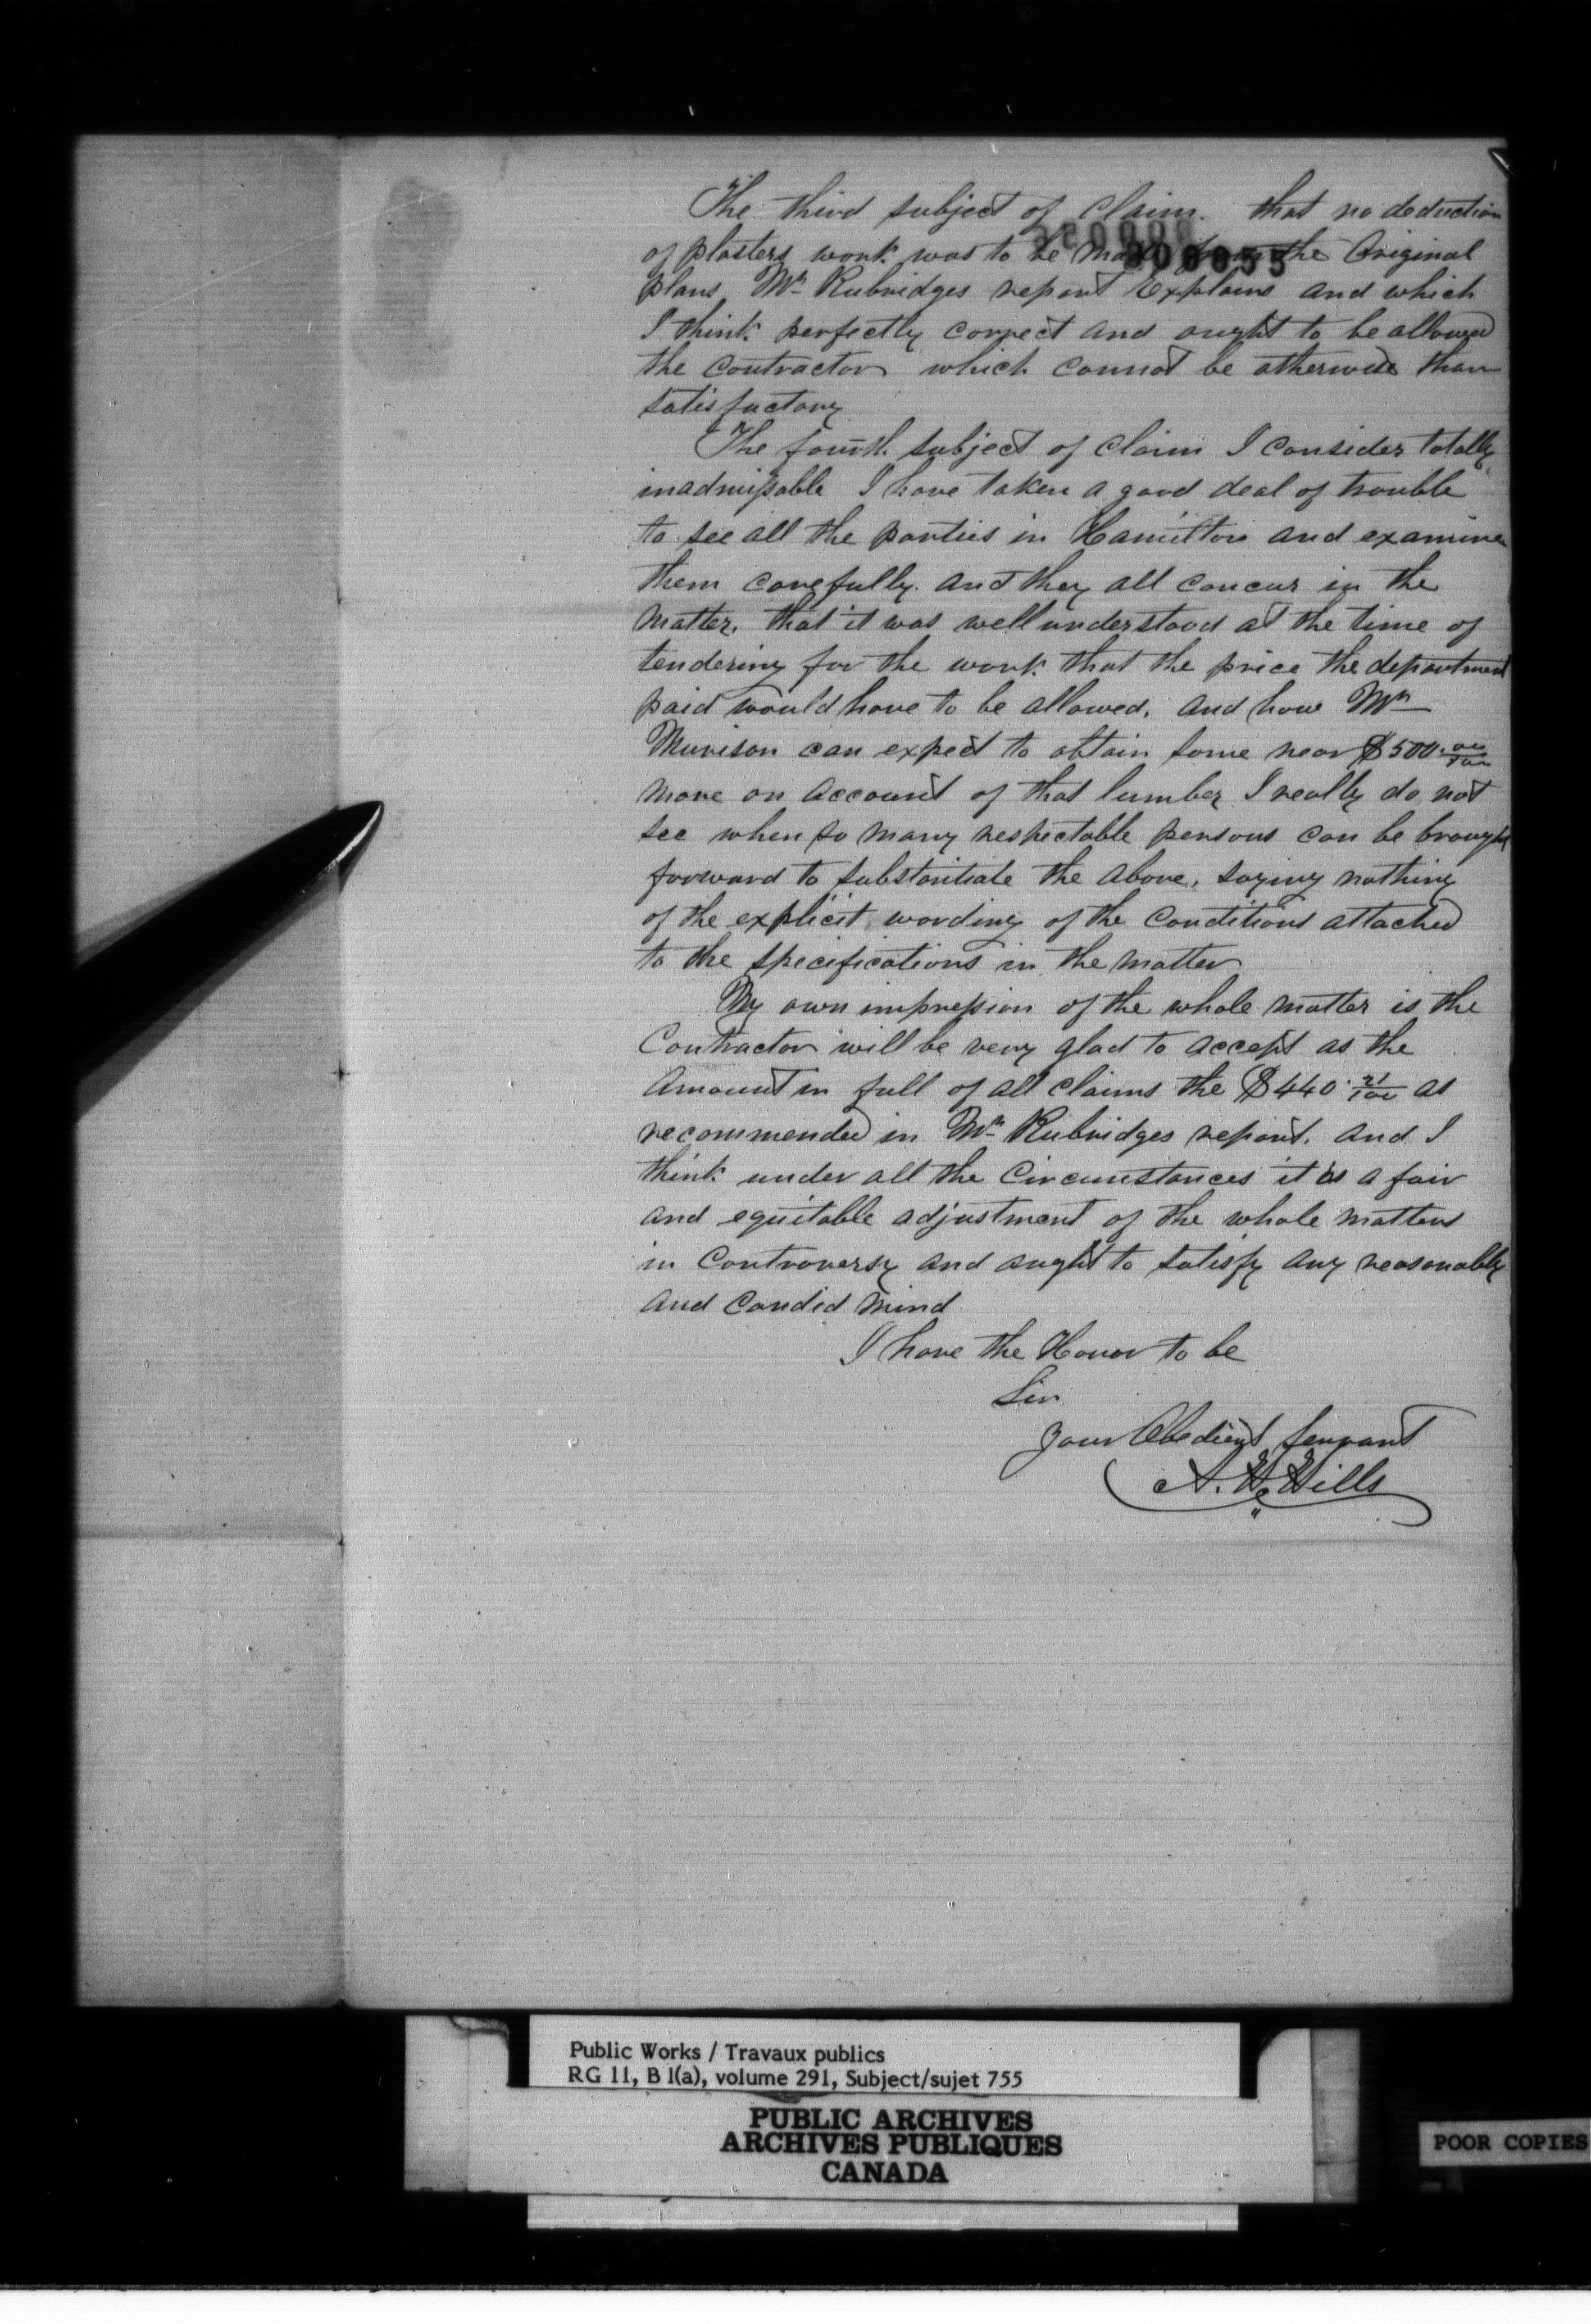 The third subject of Claim. that no deduction
of plasters work was to be made from the Original
plans Mr Rubridges report Explains and which
I think perfectly correct and ought to be allowed
the Contractor which cannot be otherwise than
satisfactory
The fourth subject of Claim I consider totally
inadmissable I have taken a good deal of trouble
to see all the parties in Hamilton and examine
them carefully. and they all concur in the
matter, that it was well understood at the time of
tendering for the work that the price the department
paid would have to be allowed, and how Mr
Murison can expect to obtain some near $500.00/100
more on account of that lumber I really do not
see when so many respectable persons can be brought
forward to substantiate the above, saying nothing
of the explicit wording of the Conditions attached
to the specifications in the matter
My own impression of the whole matter is the
Contractor will be very glad to accept as the
amount in full of all claims the $440.21/100 as
recommended in Mr Rubridges report. and I
think under all the Circumstances it is a fair
and equitable adjustment of the whole matters
in Controversy and ought to satisfy any reasonable
and Candid mind
I have the Honor to be
Sir
your Obedient Servant
A. H. Hills
Public Works / Travaux publics
RG 11, B 1(a), volume 291, Subject/sujet 755
PUBLIC ARCHIVES
ARCHIVES PUBLIQUES
CANADA
POOR COPIES